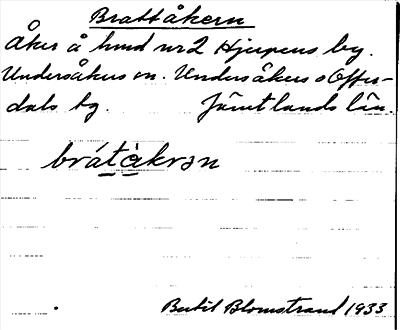 Brattåkern
Åker å hmd nr 2 Hjerpens by.
Undersåkers sn. Undersåkers o Offer-
dals tg. Jämtlands län.
brátàkrən
Bertil Blomstrand 1933